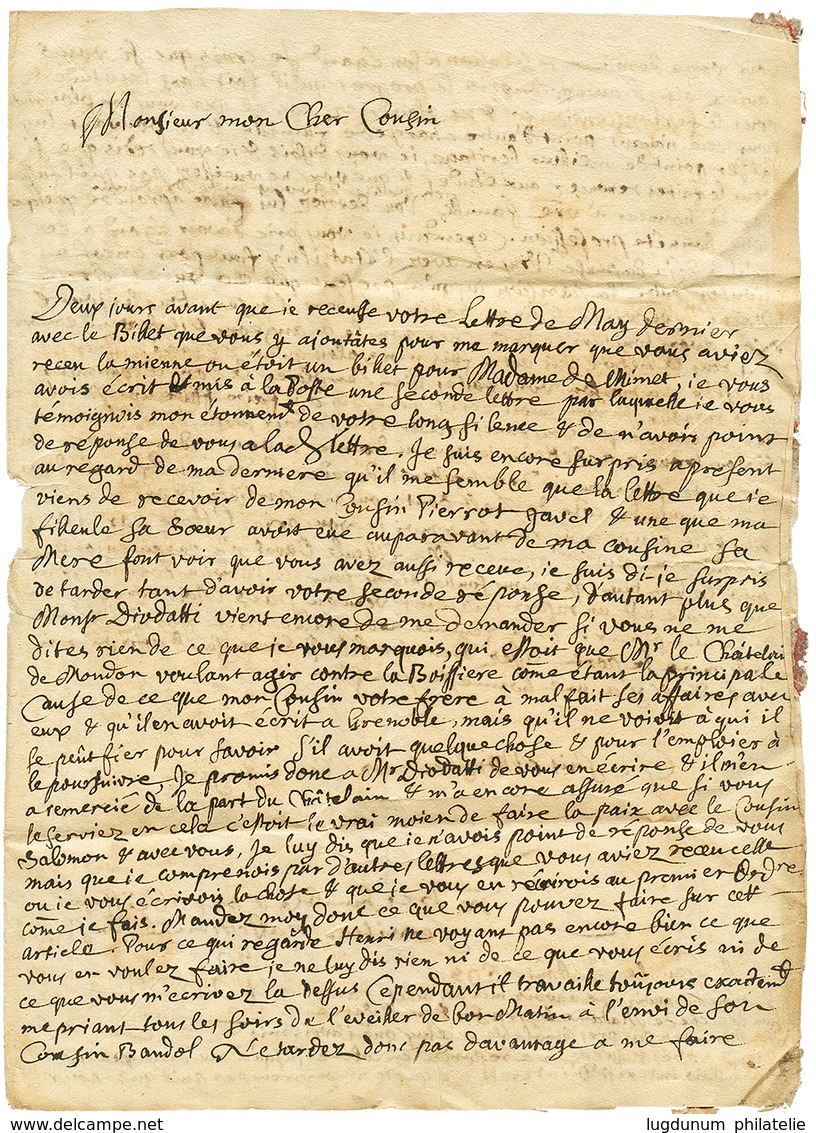 Monsieur mon Cher Cousin
Deux jours avant que ie receusse votre lettre de May dernier
avec le Billet que vous y ajoutâtes pour me marquer que vous aviez
receu la mienne ou étoit un billet pour Madame de Mimet, ie vous
avois écrit & mis à la Poste une seconde lettre par laquelle ie vous
témoignois mon étonnemt de votre long silence & de n'avoir point
de réponse de vous a lad lettre. Je suis encore surpris a present
au regard de ma derniere qu'il me semble que la lettre que ie
viens de recevoir de mon Cousin Pierrot Javel & une que ma
filleule sa Sœur avoit eüe auparavant de ma cousine sa
Mere font voir que vous avez aussi receue, ie suis di-je surpris
de tarder tant d'avoir votre seconde réponse, d'autant plus que
Monsr Diodatti vient encore de me demander si vous ne me
dites rien de ce que je vous marquois, qui estoit que Mr le Châtelain
de Moudon voulant agir contre la Boissiere come étant la principale
Cause de ce que mon Cousin votre frere à mal fait ses affaires avec
eux & qu'il en avoit écrit a Grenoble, mais qu'il ne voioit à qui il
se peût fier pour savoir s'il avoit quelque chose & pour l'emploier à
le poursuivre, Je promis donc a Mr Diodatti de vous en écrire & il m'en
a remercié de la part du Châtelain & m'a encore assuré que si vous
le serviez en cela c'estoit le vrai moien de faire la paix avec le Cousin
Salomon & avec vous, Je luy dis que ie n'avois point de réponse de vous
mais que ie comprenois par d'autres lettres que vous aviez receu celle
ou ie vous écrivois la chose & que je vous en récrirois au premier Ordre
come je fais. Mandez moy donc ce que vous pouvez faire sur cet
article. Pour ce qui regarde Henri ne voyant pas encore bien ce que
vous en voulez faire je ne luy dis rien ni de ce que vous écris ni de
ce que vous m'ecrivez la dessus Cependant il travaille toûjours exactemt
me priant tous les soirs de l'eveiller de bon Matin à l'envi de son
Cousin Bandol Ne tardez donc pas davantage a me faire
www.delcampe.net
lugdunum philatelie